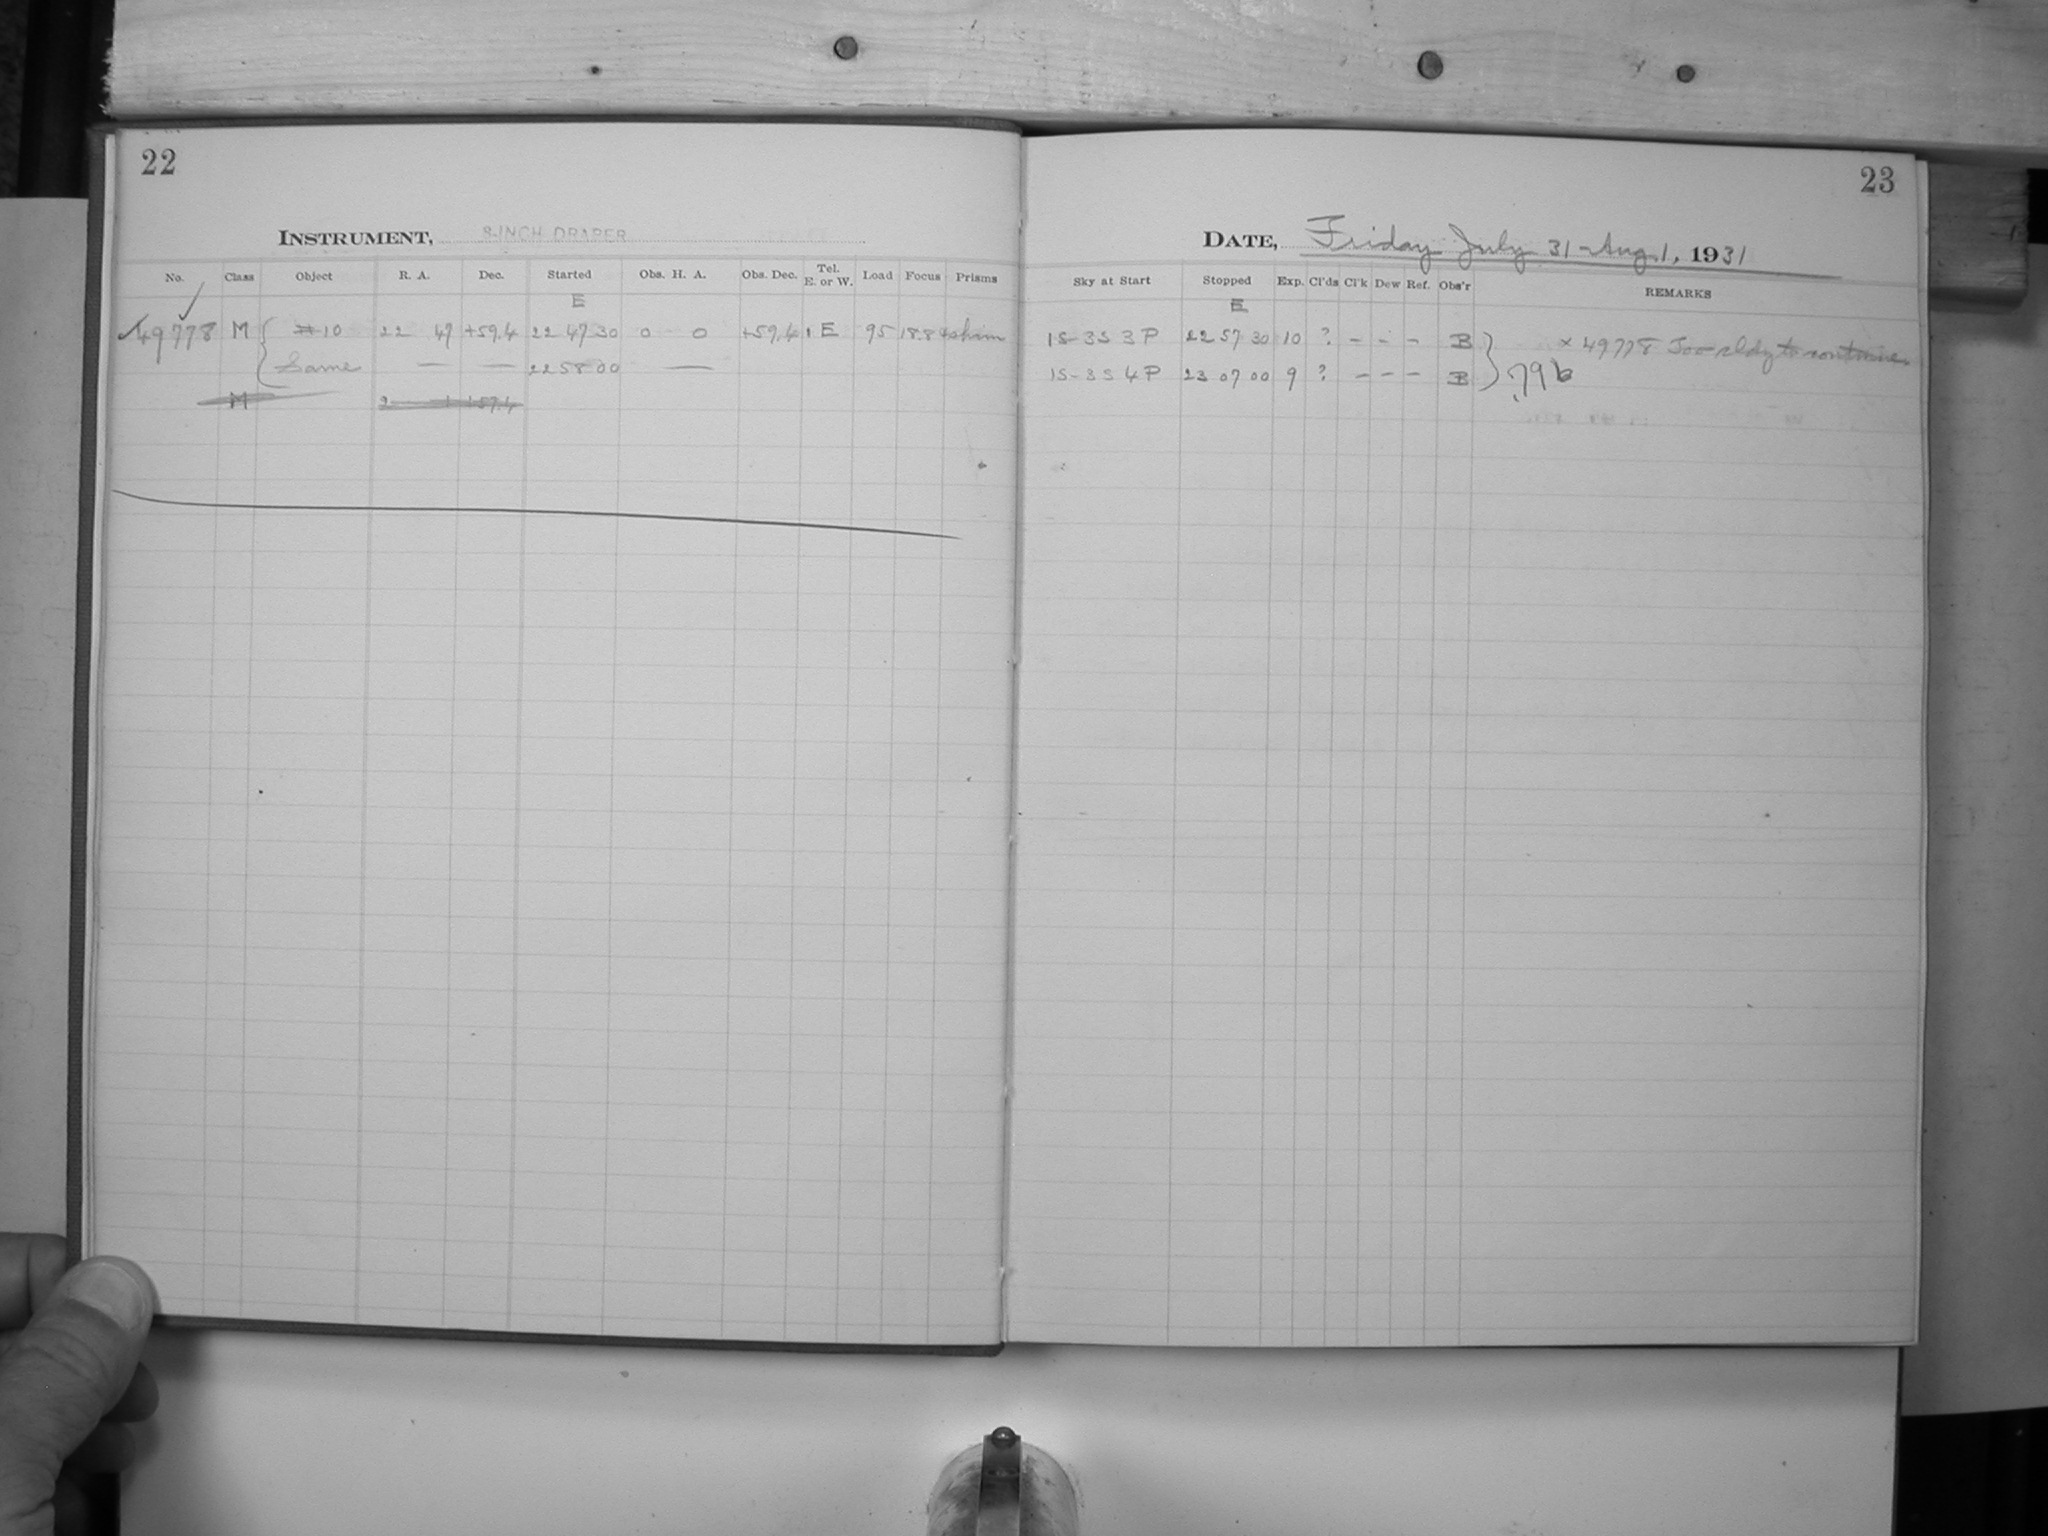 22
INSTRUMENT, 8-INCH DRAPER
No. Class Object R. A. Dec. Started Obs. H. A. Obs. Dec. Tel. E. or W. Load Focus Prisms
E
49778 M #10 22 47 +59.4 22 47 30 0 0 +59.4 E 95 18.8
Same — — 22 58 00 —
M +57.4
23
DATE, Friday July 31-Aug. 1, 1931
Sky at Start Stopped Exp. Cl'ds Cl'k Dew Ref. Obs'r REMARKS
E
1S-3S 3P 22 57 30 10 ? - - - B × 49778 Too cldy to continue.
1S-3S 4P 23 07 00 9 ? - - - B .796